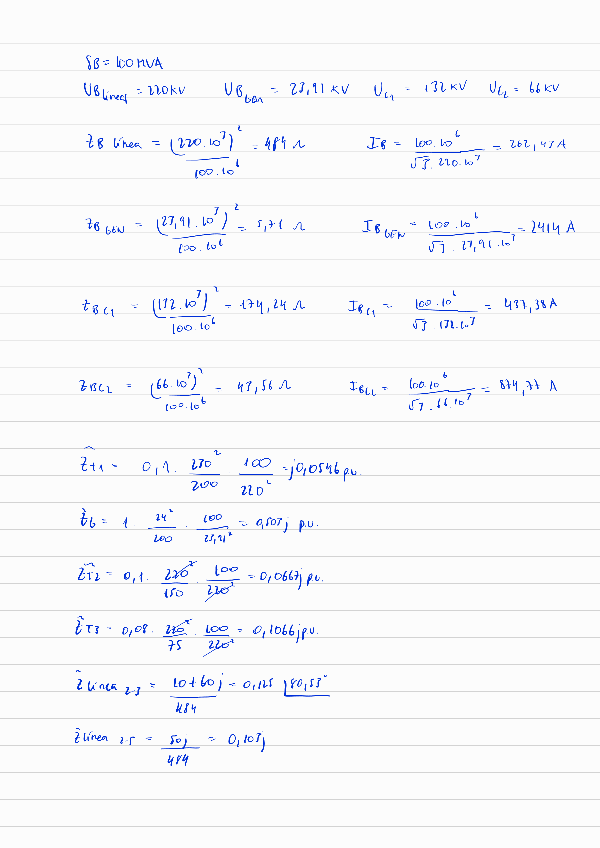 SB = 100 MVA
UB linea = 220 KV UB gen = 23,91 KV UC1 = 132 KV UC2 = 66 KV
ZB linea = (220·10³)² / 100·10⁶ = 484 Ω IB = 100·10⁶ / √3 · 220·10³ = 262,43 A
ZB GEN = (23,91·10³)² / 100·10⁶ = 5,71 Ω IB GEN = 100·10⁶ / √3 · 23,91·10³ = 2414 A
ZBC1 = (132·10³)² / 100·10⁶ = 174,24 Ω IBC1 = 100·10⁶ / √3 · 132·10³ = 437,38 A
ZBC2 = (66·10³)² / 100·10⁶ = 43,56 Ω IBC2 = 100·10⁶ / √3 · 66·10³ = 874,77 A
ZT1 = 0,1 · 230² / 200 · 100 / 220² = j0,0546 pu.
Z6 = 1 24² / 200 · 100 / 23,91² = 0,503j p.u.
ZT2 = 0,1 · 220² / 150 · 100 / 220² = 0,0667j pu.
ZT3 = 0,08 · 220² / 75 · 100 / 220² = 0,1066j pu.
Z linea 2-3 = 10+60j / 484 = 0,125 |80,53°
Z linea 2-5 = 50j / 484 = 0,103j